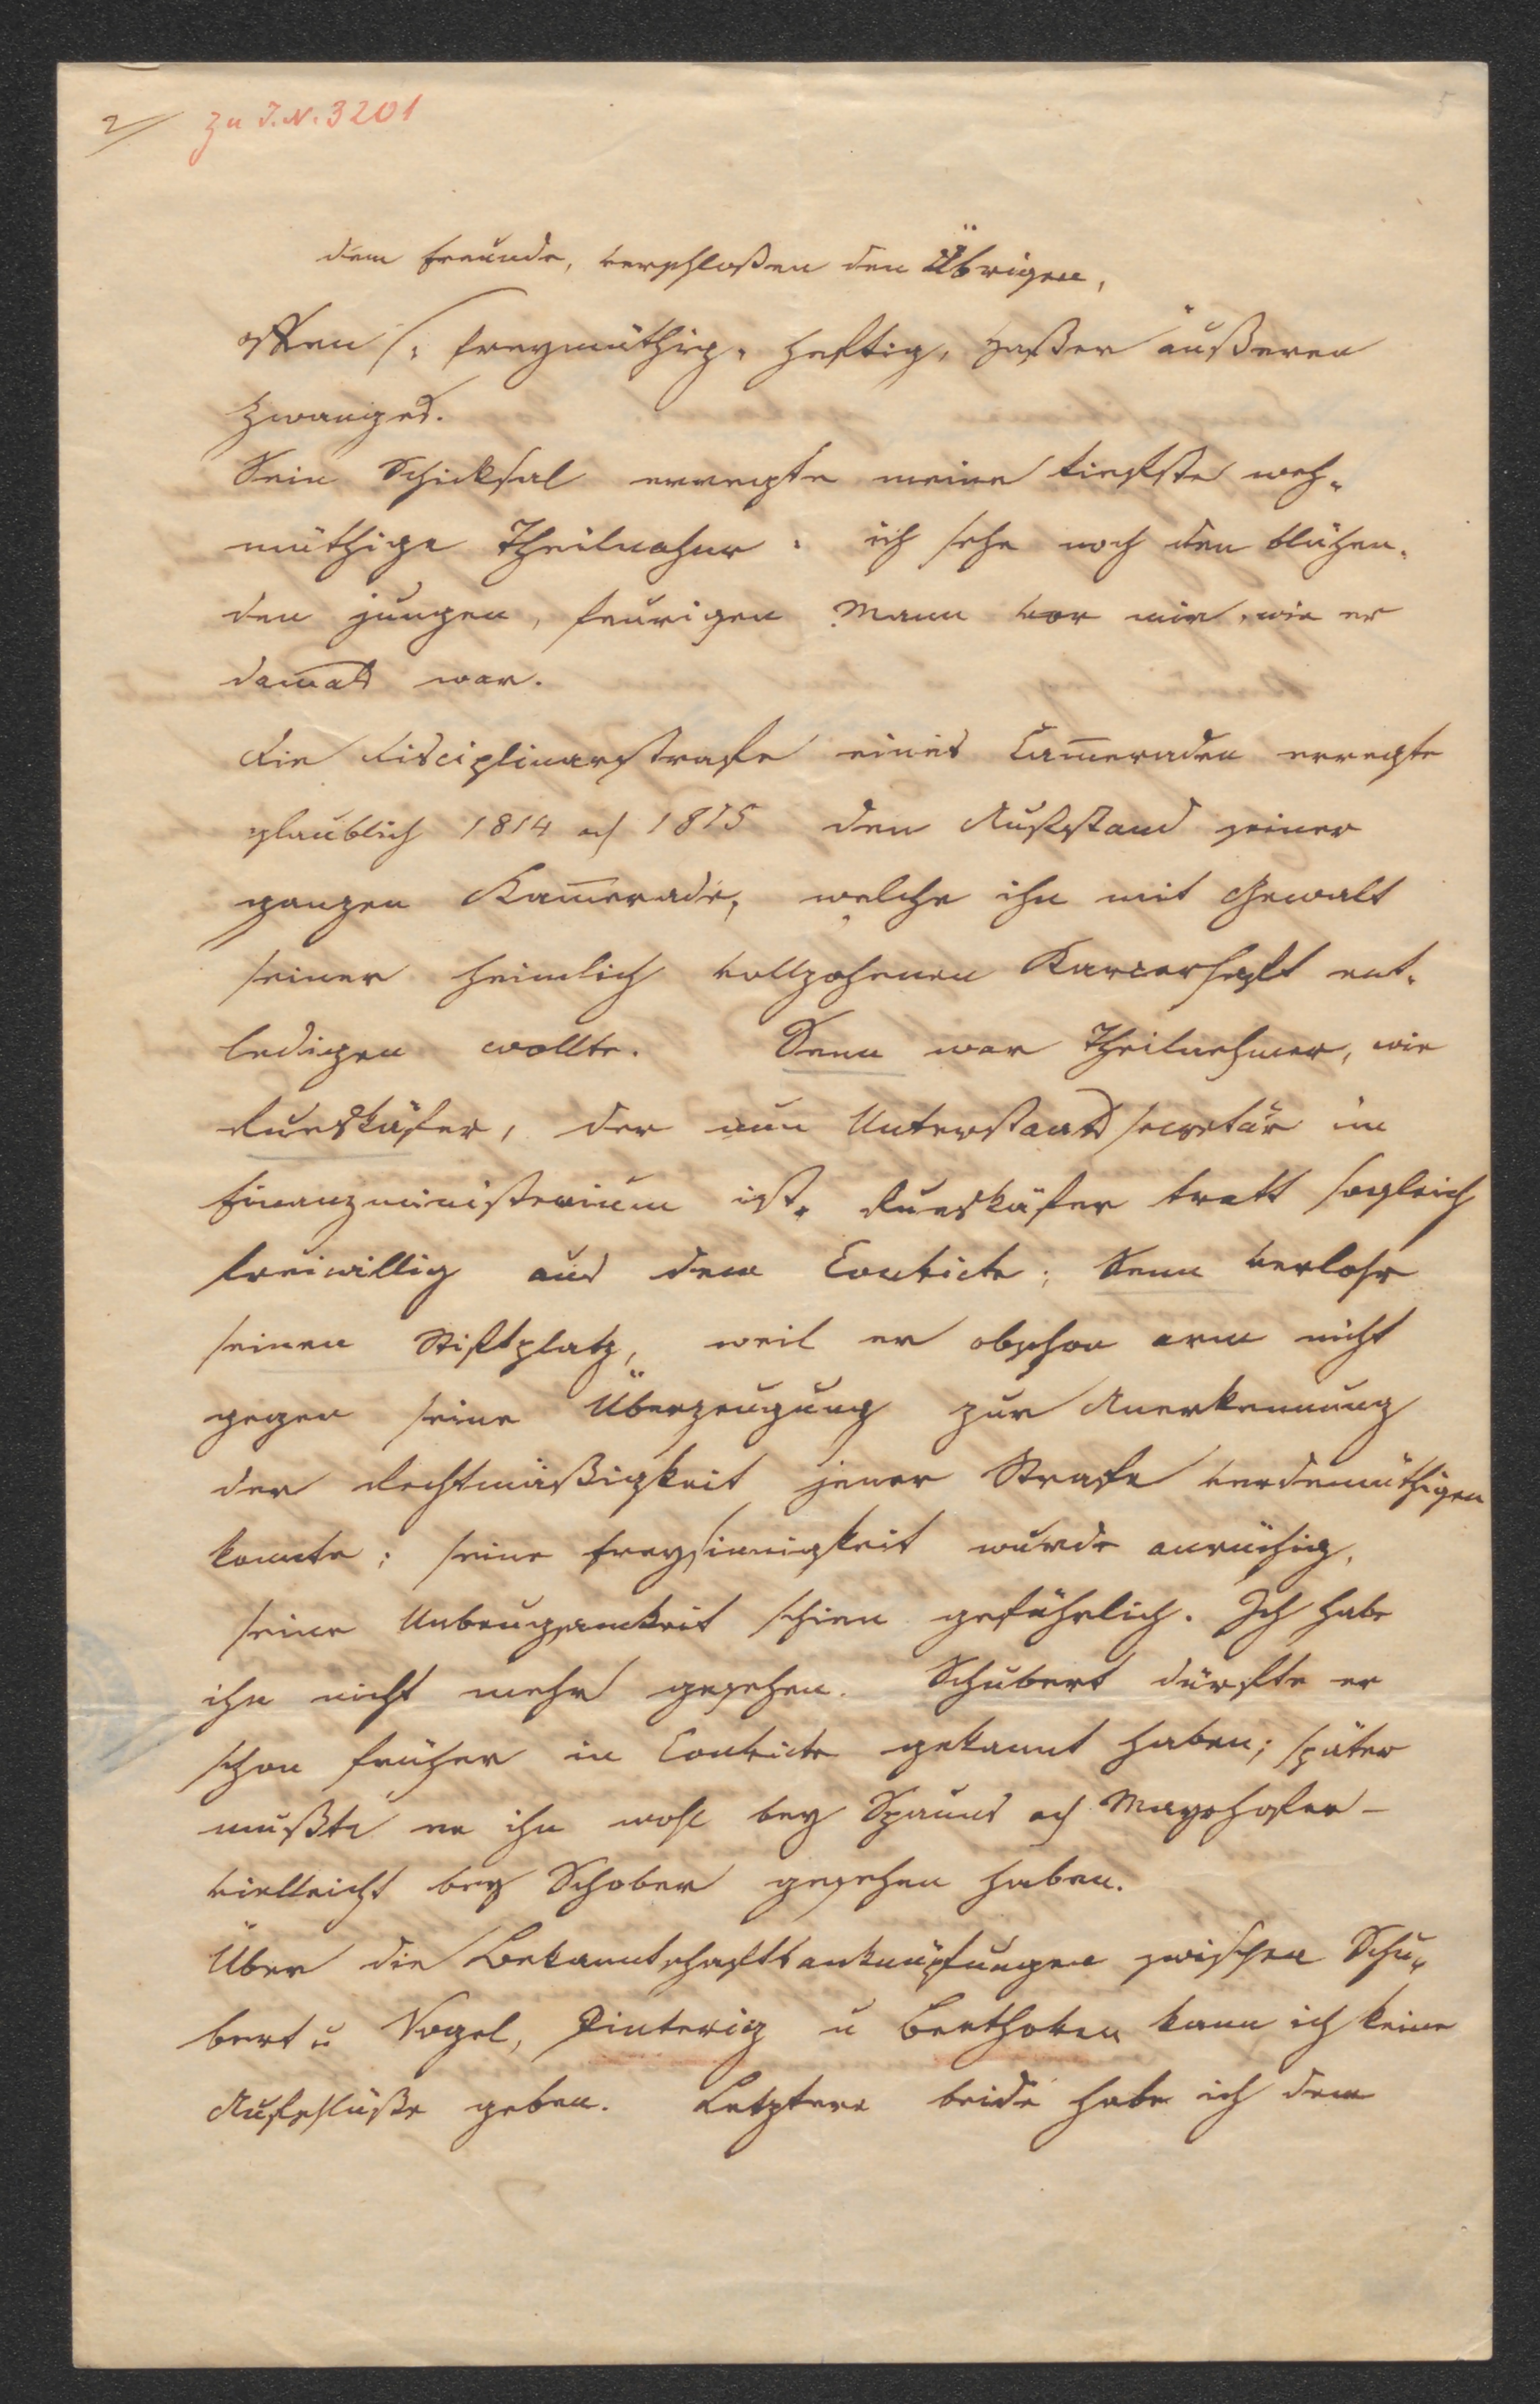 2/ zu J.N. 3201
5
dem Freunde, verschloßen den Übrigen,
offen /: freymüthig, heftig, Haßer äußeren
Zwanges.
Sein Schicksal erregte meine tiefste weh-
müthige Theilnahme. ich sehe noch den blühen-
den jungen, feurigen Mann vor mir, wie er
damals war.
Die Disciplinarstrafe eines Cam̄eraden erregte
glaublich 1814 od 1815 den Aufstand seiner
ganzen Kam̄erade, welche ihn mit Gewalt
seiner heimlich vollzohenen Karcerhaft ent-
ledigen wollte. Senn war Theilnehmer, wie
Rueskäfer, der nun Unterstaatssecretär im
Finanzministerium ist. Rueskäfer tratt sogleich
freiwillig aus dem Convicte; Senn verlohr
seinen Stiftplatz, weil er obschon arm nicht
gegen seine Überzeugung zur Anerkennung
der Rechtmäßigkeit jener Strafe verdemüthigen
konnte; seine Freysinnigkeit wurde anrüchig,
seine Unbeugsamkeit schien gefährlich. Ich habe
ihn nicht mehr gesehen. Schubert dürfte er
schon früher in Convicte gekannt haben; später
mußte er ihn wohl bey Spauns od Mayrhofer –
vielleicht bey Schober gesehen haben.
Über die Bekanntschaftsanknüpfungen zwischen Schu-
bert u Vogel, Pinterig u Beethoven kann ich keine
Aufschlüße geben. Letztere beide habe ich dem